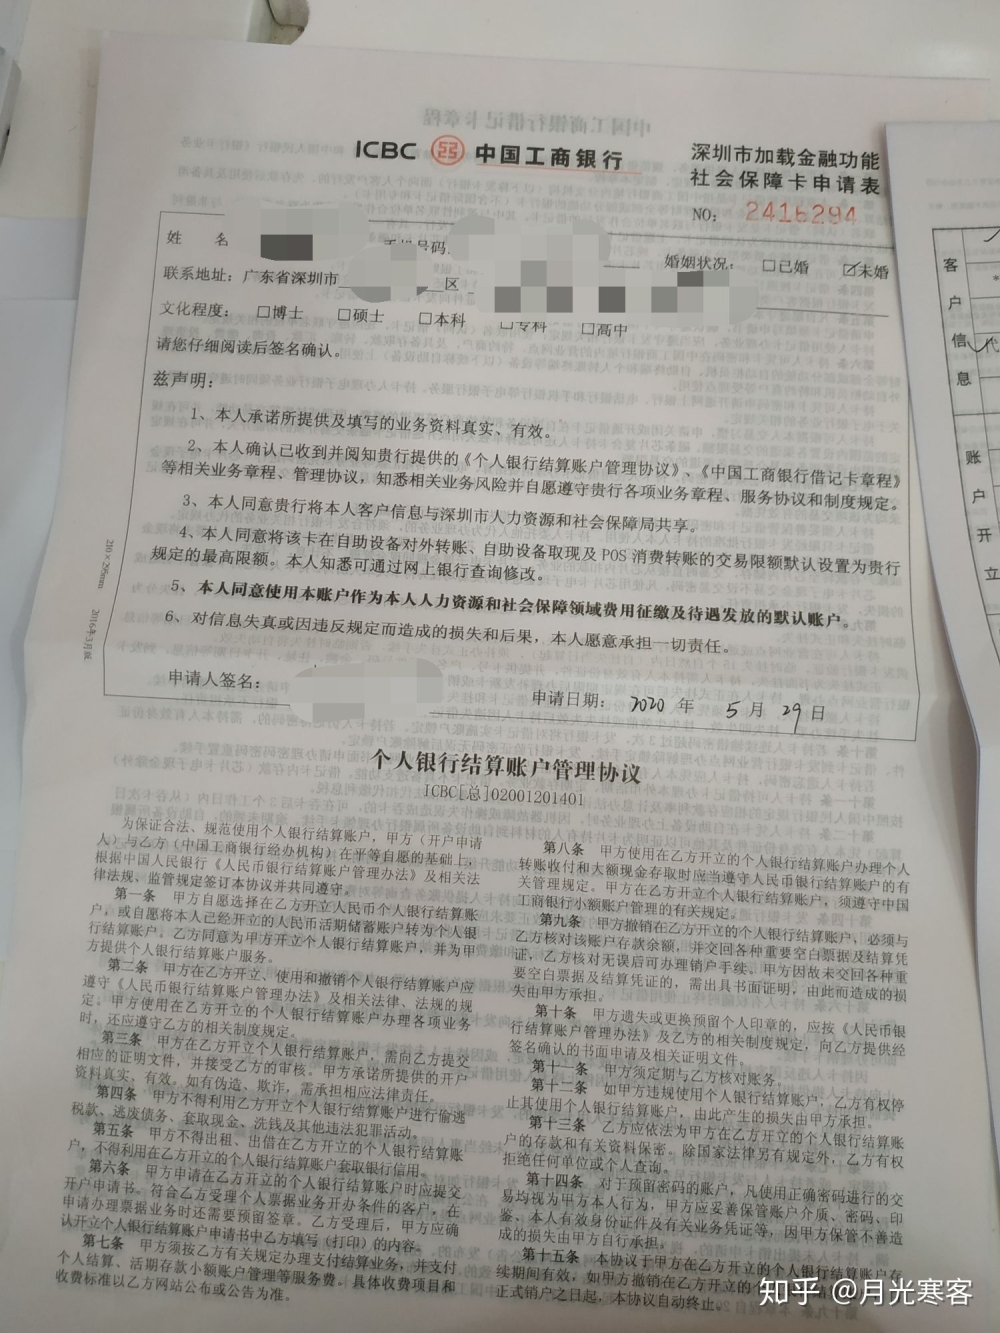 ICBC 中国工商银行
深圳市加载金融功能
社会保障卡申请表
NO: 2416294
姓 名
婚姻状况: □已婚 ☑未婚
联系地址: 广东省深圳市 区
文化程度: □博士 □硕士 □本科 □专科 □高中
请您仔细阅读后签名确认。
兹声明:
1、本人承诺所提供及填写的业务资料真实、有效。
2、本人确认已收到并阅知贵行提供的《个人银行结算账户管理协议》、《中国工商银行借记卡章程》
等相关业务章程、管理协议,知悉相关业务风险并自愿遵守贵行各项业务章程、服务协议和制度规定。
3、本人同意贵行将本人客户信息与深圳市人力资源和社会保障局共享。
4、本人同意将该卡在自助设备对外转账、自助设备取现及POS消费转账的交易限额默认设置为贵行
规定的最高限额。本人知悉可通过网上银行查询修改。
5、本人同意使用本账户作为本人人力资源和社会保障领域费用征缴及待遇发放的默认账户。
6、对信息失真或因违反规定而造成的损失和后果,本人愿意承担一切责任。
申请人签名:
申请日期: 2020 年 5 月 29 日
210×295mm 2016年3月版
个人银行结算账户管理协议
ICBC[总]02001201401
为保证合法、规范使用个人银行结算账户,甲方(开户申请
人)与乙方(中国工商银行经办机构)在平等自愿的基础上,
根据中国人民银行《人民币银行结算账户管理办法》及相关法
律法规、监管规定签订本协议并共同遵守。
第一条 甲方自愿选择在乙方开立人民币个人银行结算账
户,或自愿将本人已经开立的人民币活期储蓄账户转为个人银
行结算账户。乙方同意为甲方开立个人银行结算账户,并为甲
方提供个人银行账户服务。
第二条 甲方在乙方开立、使用和撤销个人银行结算账户应
遵守《人民币银行结算账户管理办法》及相关法律、法规的规
定。甲方使用在乙方开立的个人银行结算账户办理各项业务
时,还应遵守乙方的相关制度规定。
第三条 甲方在乙方开立个人银行结算账户,需向乙方提交
相应的证明文件,并接受乙方的审核。甲方承诺所提供的开户
资料真实、有效,如有伪造、欺诈,需承担相应法律责任。
第四条 甲方不得利用乙方开立个人银行结算账户进行偷逃
税款、逃废债务、套取现金、洗钱及其他违法犯罪活动。
第五条 甲方不得出租、出借在乙方开立的个人银行结算账
户,不得利用在乙方开立的个人银行结算账户套取银行信用。
第六条 甲方申请在乙方开立的个人银行结算账户时应提交
开户申请书。符合乙方受理个人票据业务开办条件的客户,在
申请办理票据业务时还需要预留签章。乙方受理后,甲方应确
认开立个人银行结算账户申请书中乙方填写(打印)的内容。
第七条 甲方须按乙方有关规定办理支付结算业务,并支付
个人结算、活期存款小额账户管理等服务费。具体收费项目和
收费标准以乙方网站公布或公告为准。
第八条 甲方使用在乙方开立的个人银行结算账户办理个人
转账收付和大额现金存取时应当遵守人民币银行结算账户的有
关管理规定。甲方在乙方开立个人银行结算账户,须遵守中国
工商银行小额账户管理的有关规定。
第九条 甲方撤销在乙方开立的个人银行结算账户,必须与
乙方核对该账户存款余额,并交回各种重要空白票据及结算凭
证,乙方核对无误后可办理销户手续。甲方因故未交回各种重
要空白票据及结算凭证的,需出具书面证明,由此而造成的损
失由甲方承担。
第十条 甲方遗失或更换预留个人印章的,应按《人民币银
行结算账户管理办法》及乙方的相关制度规定,向乙方提供经
签名确认的书面申请及相关证明文件。
第十一条 甲方须定期与乙方核对账务。
第十二条 如甲方违规使用个人银行结算账户,乙方有权停
止其使用个人银行结算账户,由此产生的损失由甲方承担。
第十三条 乙方应依法为甲方在乙方开立的个人银行结算账
户的存款和有关资料保密。除国家法律另有规定外,乙方有权
拒绝任何单位或个人查询。
第十四条 对于预留密码的账户,凡使用正确密码进行的交
易均视为甲方本人行为,甲方应妥善保管账户介质、密码、印
鉴、本人有效身份证件及有关业务凭证等,因甲方保管不善造
成的损失由甲方自行承担。
第十五条 本协议于甲方在乙方开立的个人银行结算账户存
续期间有效,如甲方撤销在乙方开立的个
正式销户之日起,本协议自动终止。
客
户
信
息
账
户
开
立
知乎 @月光寒客